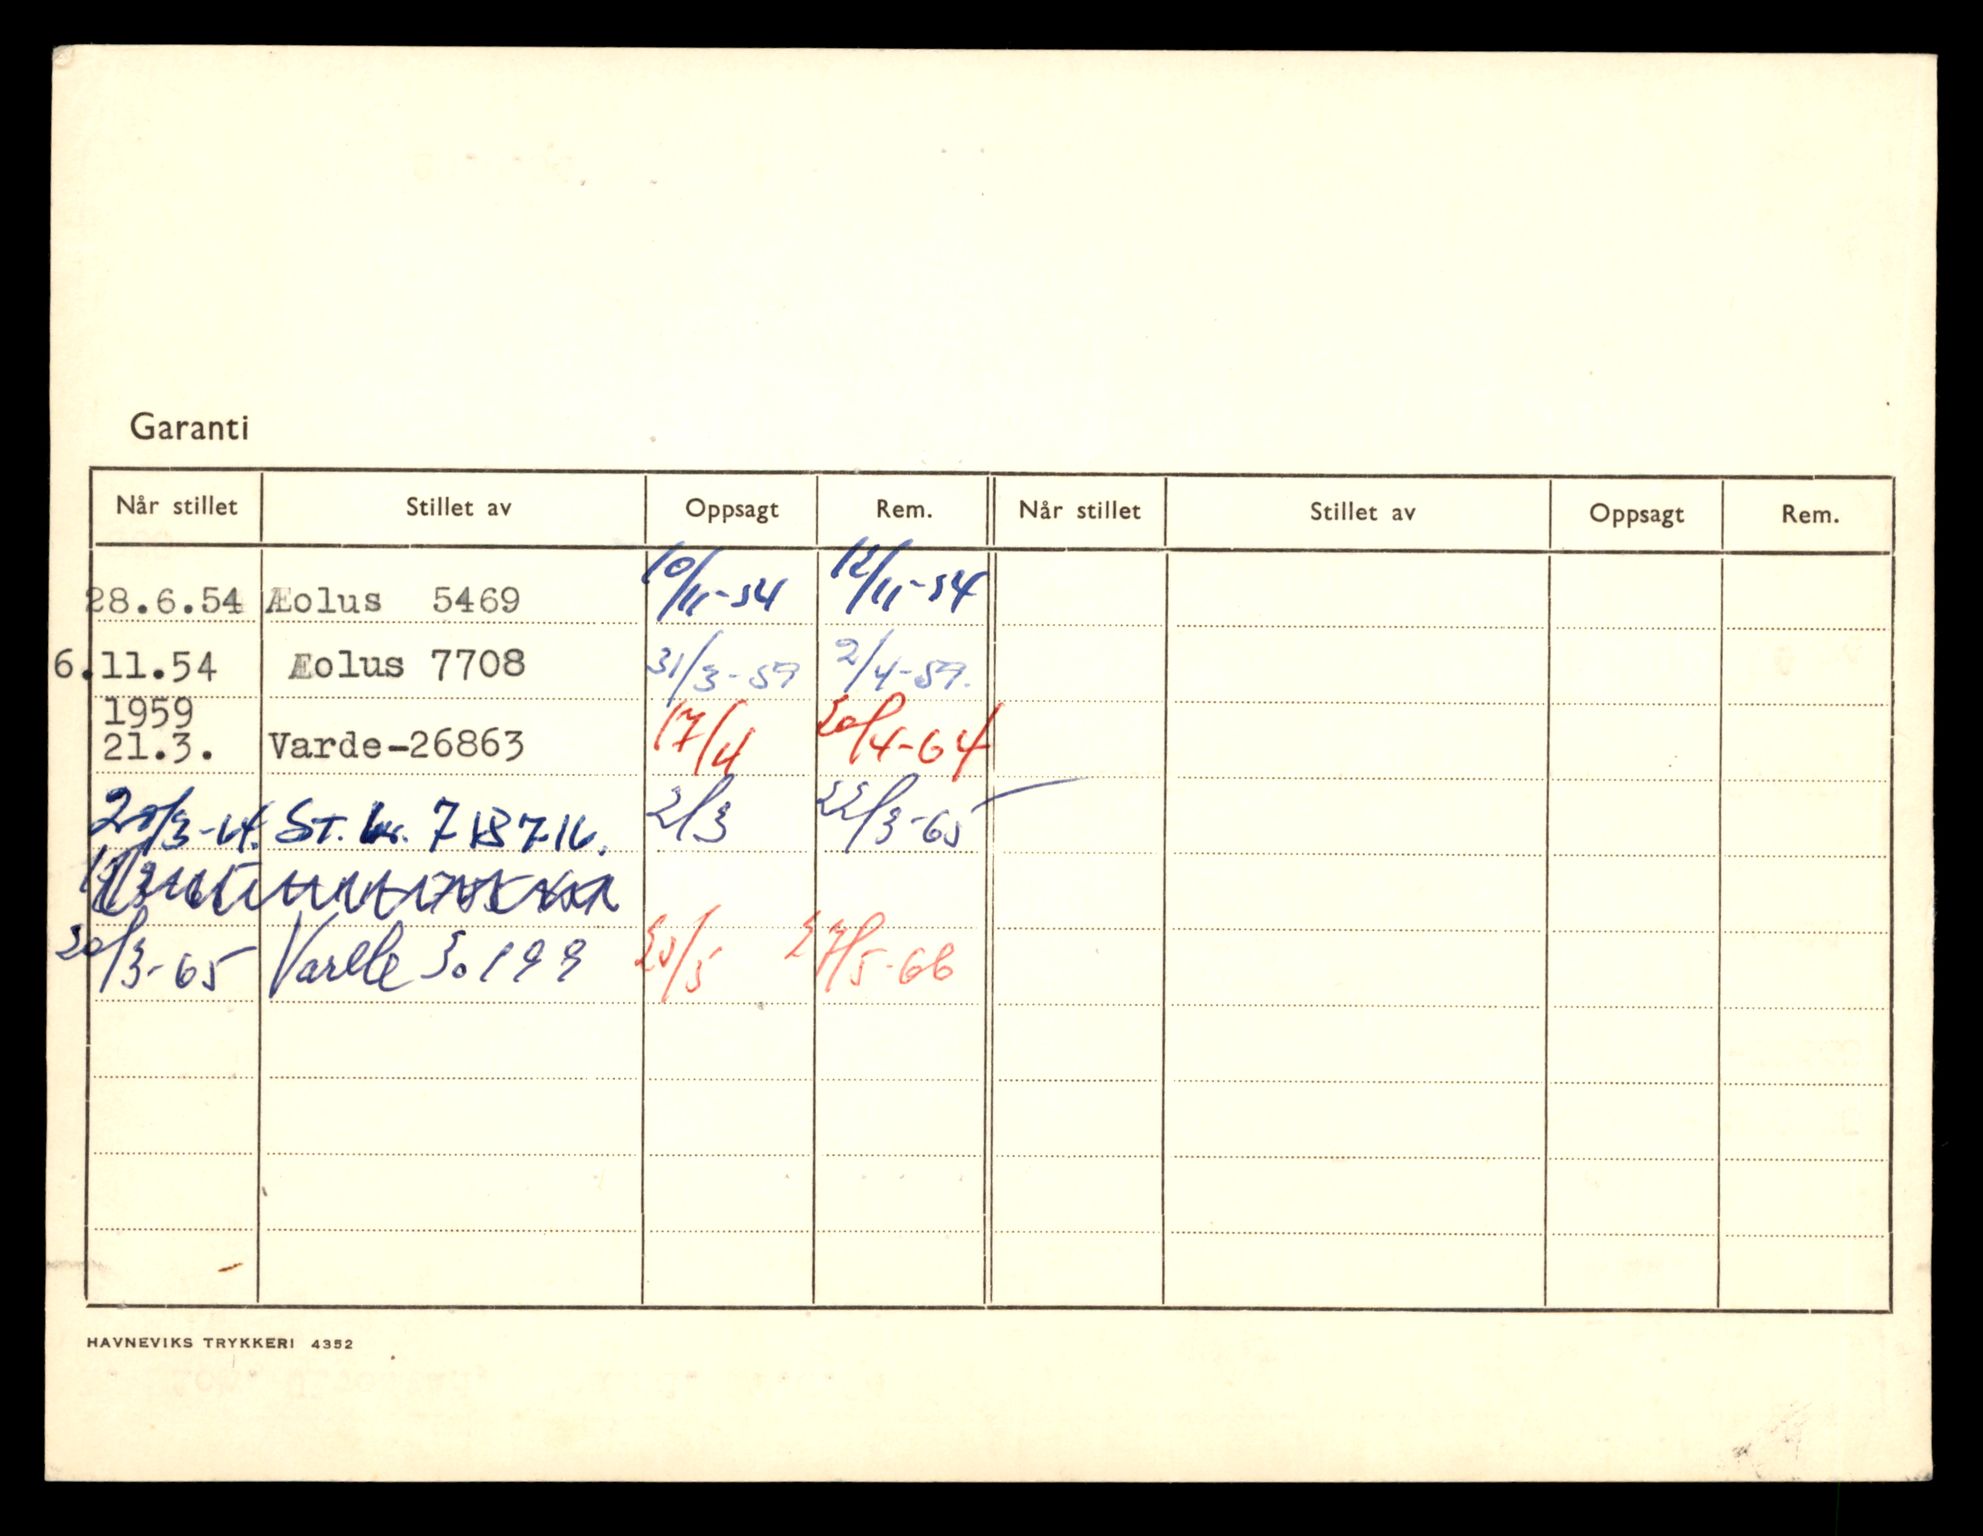 Garanti
Når stillet Stillet av Oppsagt Rem. Når stillet Stillet av Oppsagt Rem.
28.6.54 Æolus 5469 10/11-54 12/11-54
6.11.54 Æolus 7708 31/3-59 2/4-59.
1959
21.3. Varde-26863 17/4 20/4-64
20/3-64. St. 2/3 22/3-65
20/3-65 Varde 30199 27/5-66
HAVNEVIKS TRYKKERI 4352